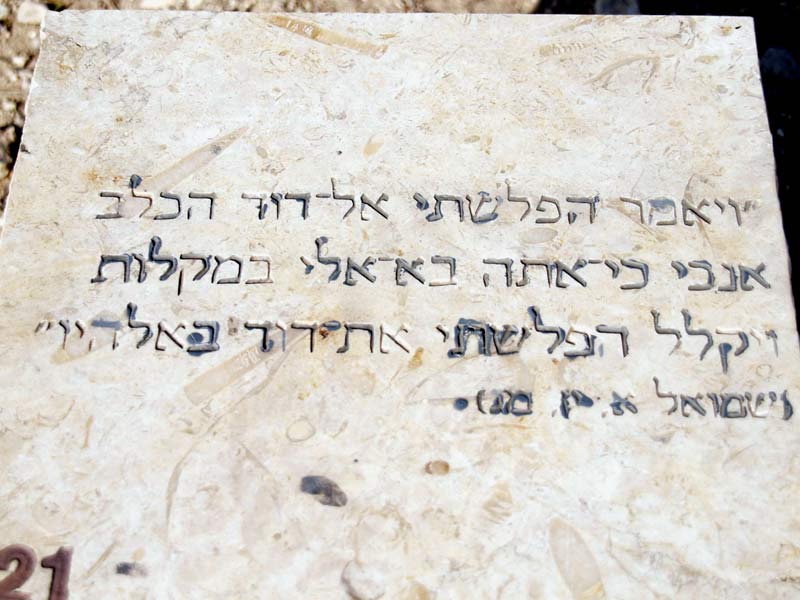 "ויאמר הפלשתי אל־דוד הכלב
אנכי כי־אתה בא־אלי במקלות
ויקלל הפלשתי את־דוד באלהיו"
(שמואל א, יז, מג)
21